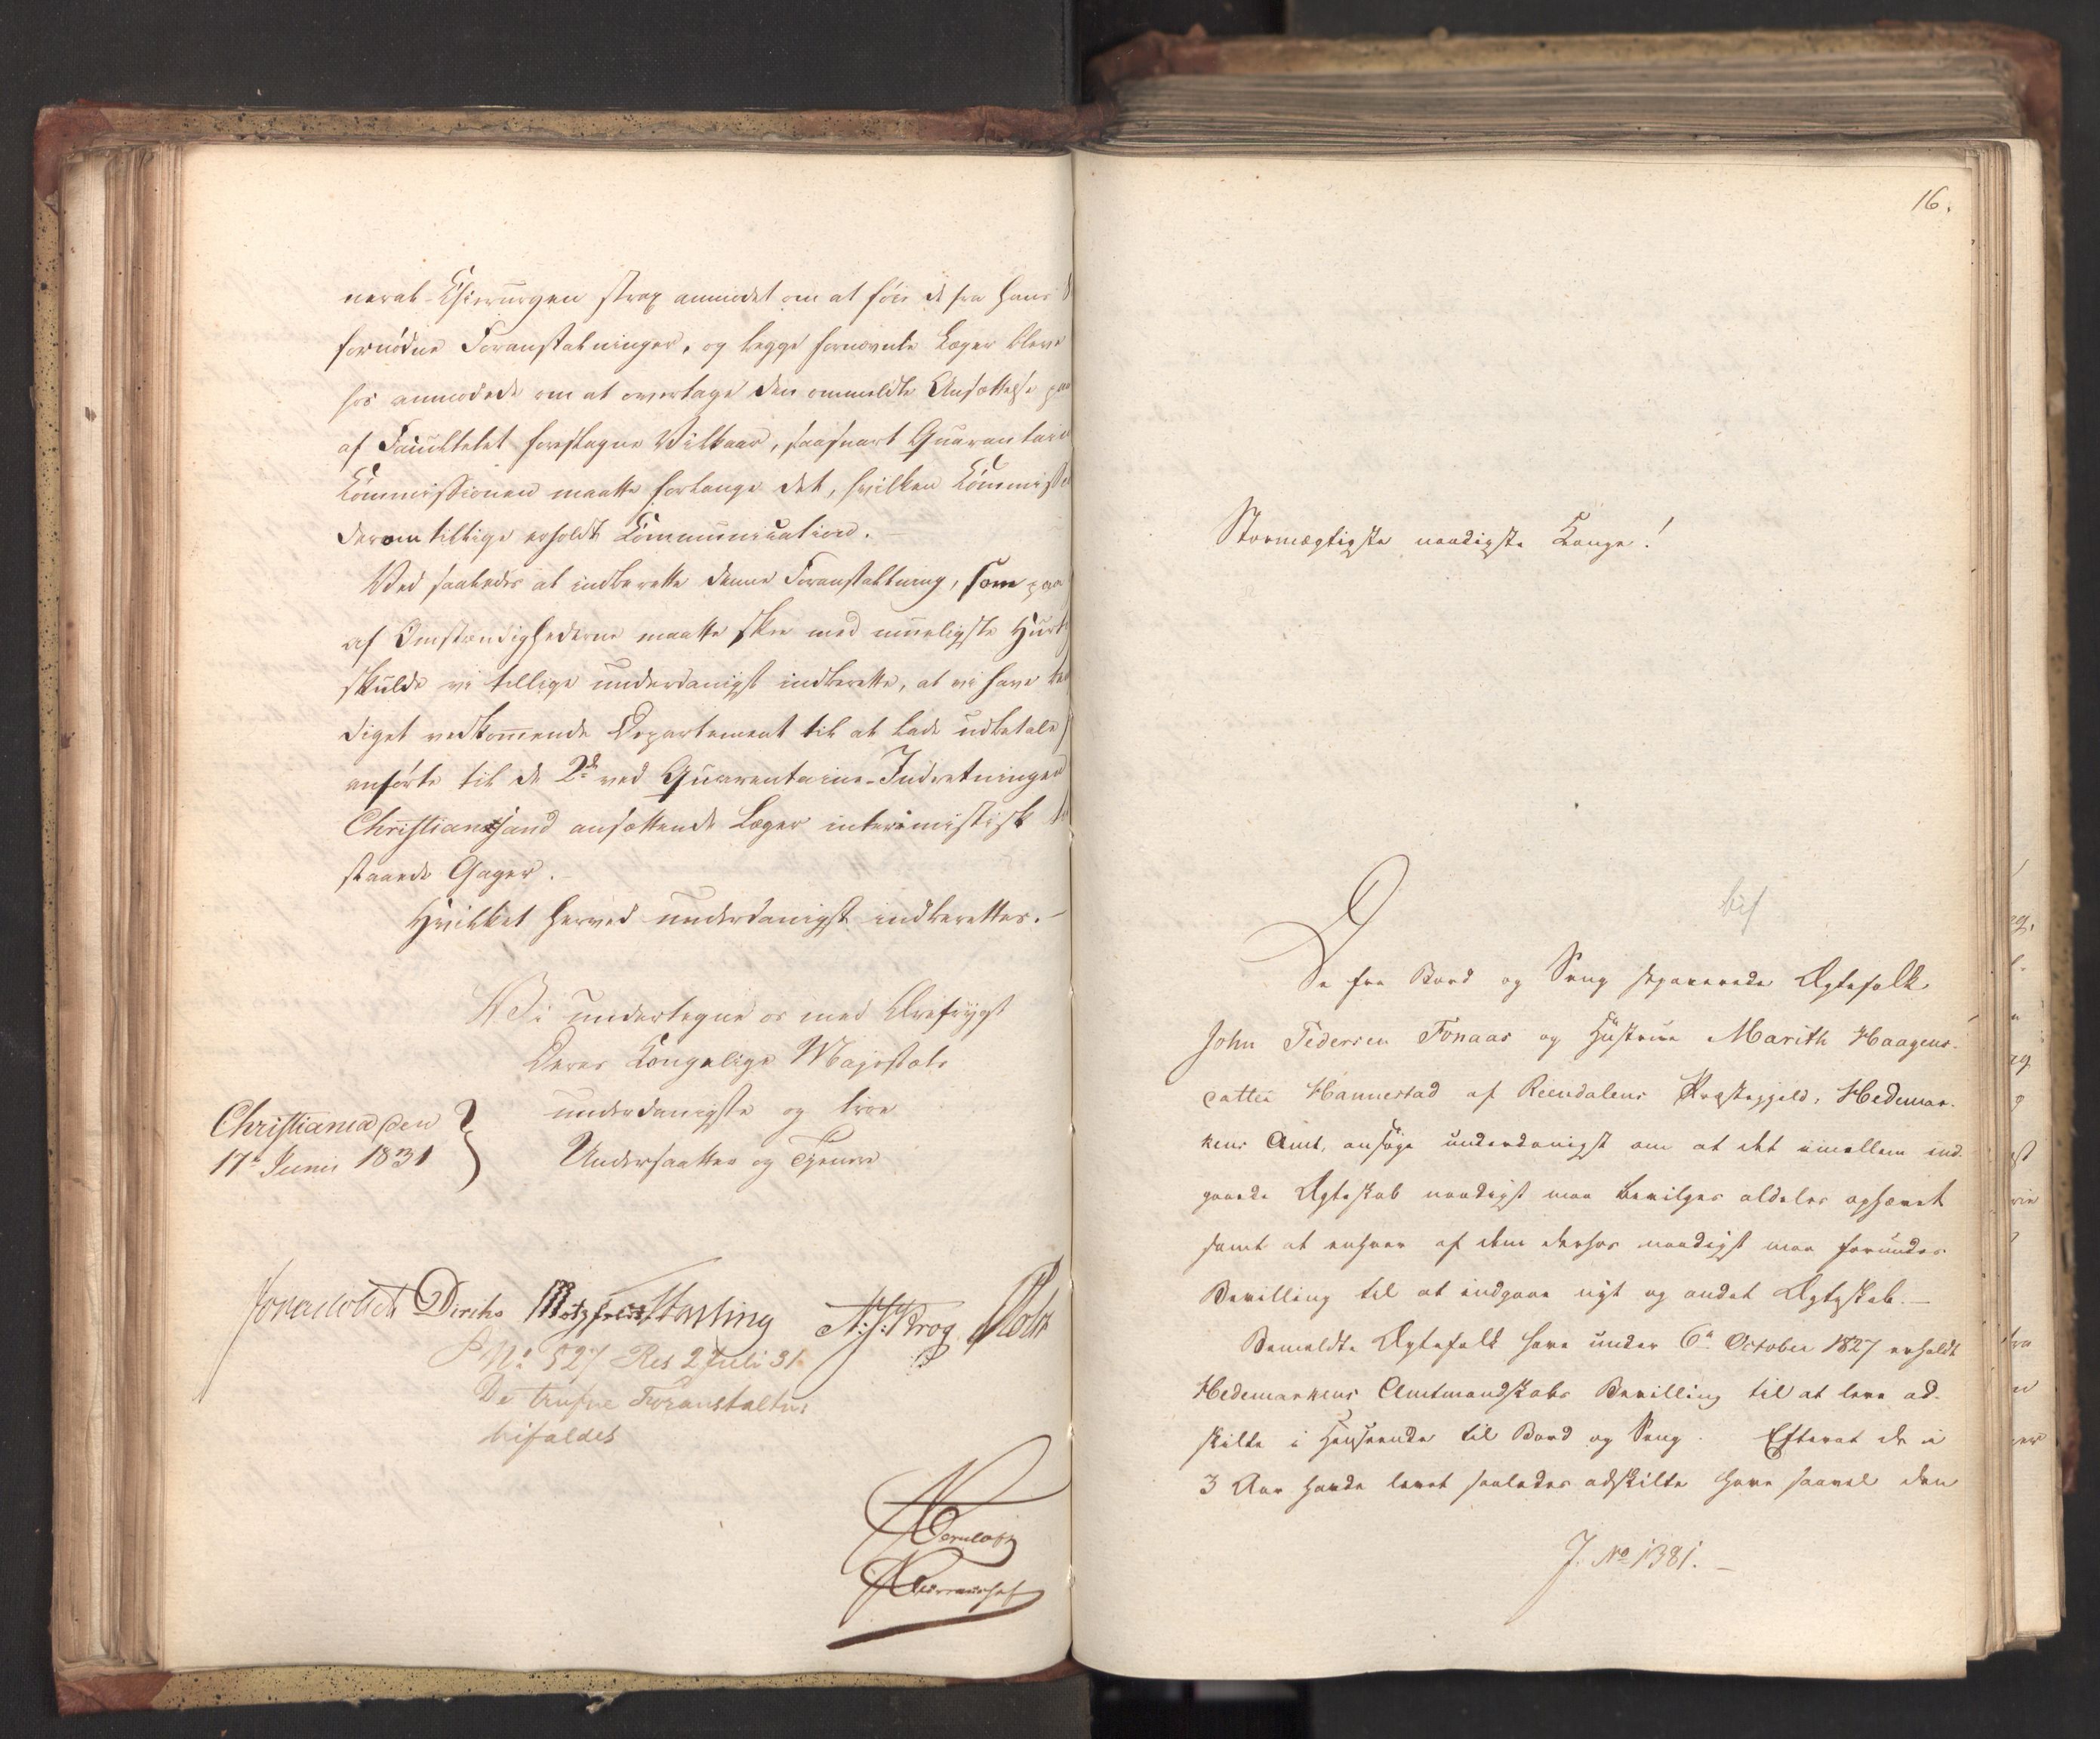 neral-Chirurgen strax anmodet om at föie de fra hans
fornödne Foranstaltninger, og begge fornævnte Læger bleve
hos anmodede om at overtage den ommeldte Ansættelse paa
af Facultetet foreslagne Vilkaar, saasnart Quarantaine
Commissionen maatte forlange det, hvilken Commissi
derom tillige erholdt Communication.
Ved saaledes at indberette denne Foranstaltning, som paa
af Omstændighederne maatte skee med mueligste Hurt
skulde vi tillige underdanigst indberette, at vi have
diget vedkommende Departement til at lade udbetale
anförte til de 2de ved Quarantaine-Indretningen
Christiansand ansættende Læger interimistisk
staaede Gager.
Hvilket herved underdanigst indberettes.
Vi undertegne os med Ærefrygt
Deres Kongelige Majestæts
underdanigste og troe
Undersaatter og Tjenere
Christiania den
17de Junii 1831
Diriks Motzfeldt N. J. Krog Holst
No 527. Res 2 Juli 31.
De trufne Foranstaltn:
bifaldes
16.
Stormægtigste naadigste Konge!
bif
De fra Bord og Seng separerede Ægtefolk
John Pedersen Fonaas og Hustrue Marith Haagens-
datter Hannestad af Reendalens Præstegjeld, Hedemar-
kens Amt, ansöge underdanigst om at det imellem ind-
gaaede Ægteskab naadigst maa bevilges aldeles ophævet
samt at enhver af dem derhos naadigst maa forundes
Bevilling til at indgaae nyt og andet Ægteskab.
Bemeldte Ægtefolk have under 6te October 1827 erholdt
Hedemarkens Amtmandskabs Bevilling til at leve ad-
skilte i Henseende til Bord og Seng. Efterat de i
3 Aar havde levet saaledes adskilte have saavel den
J. No 1381.